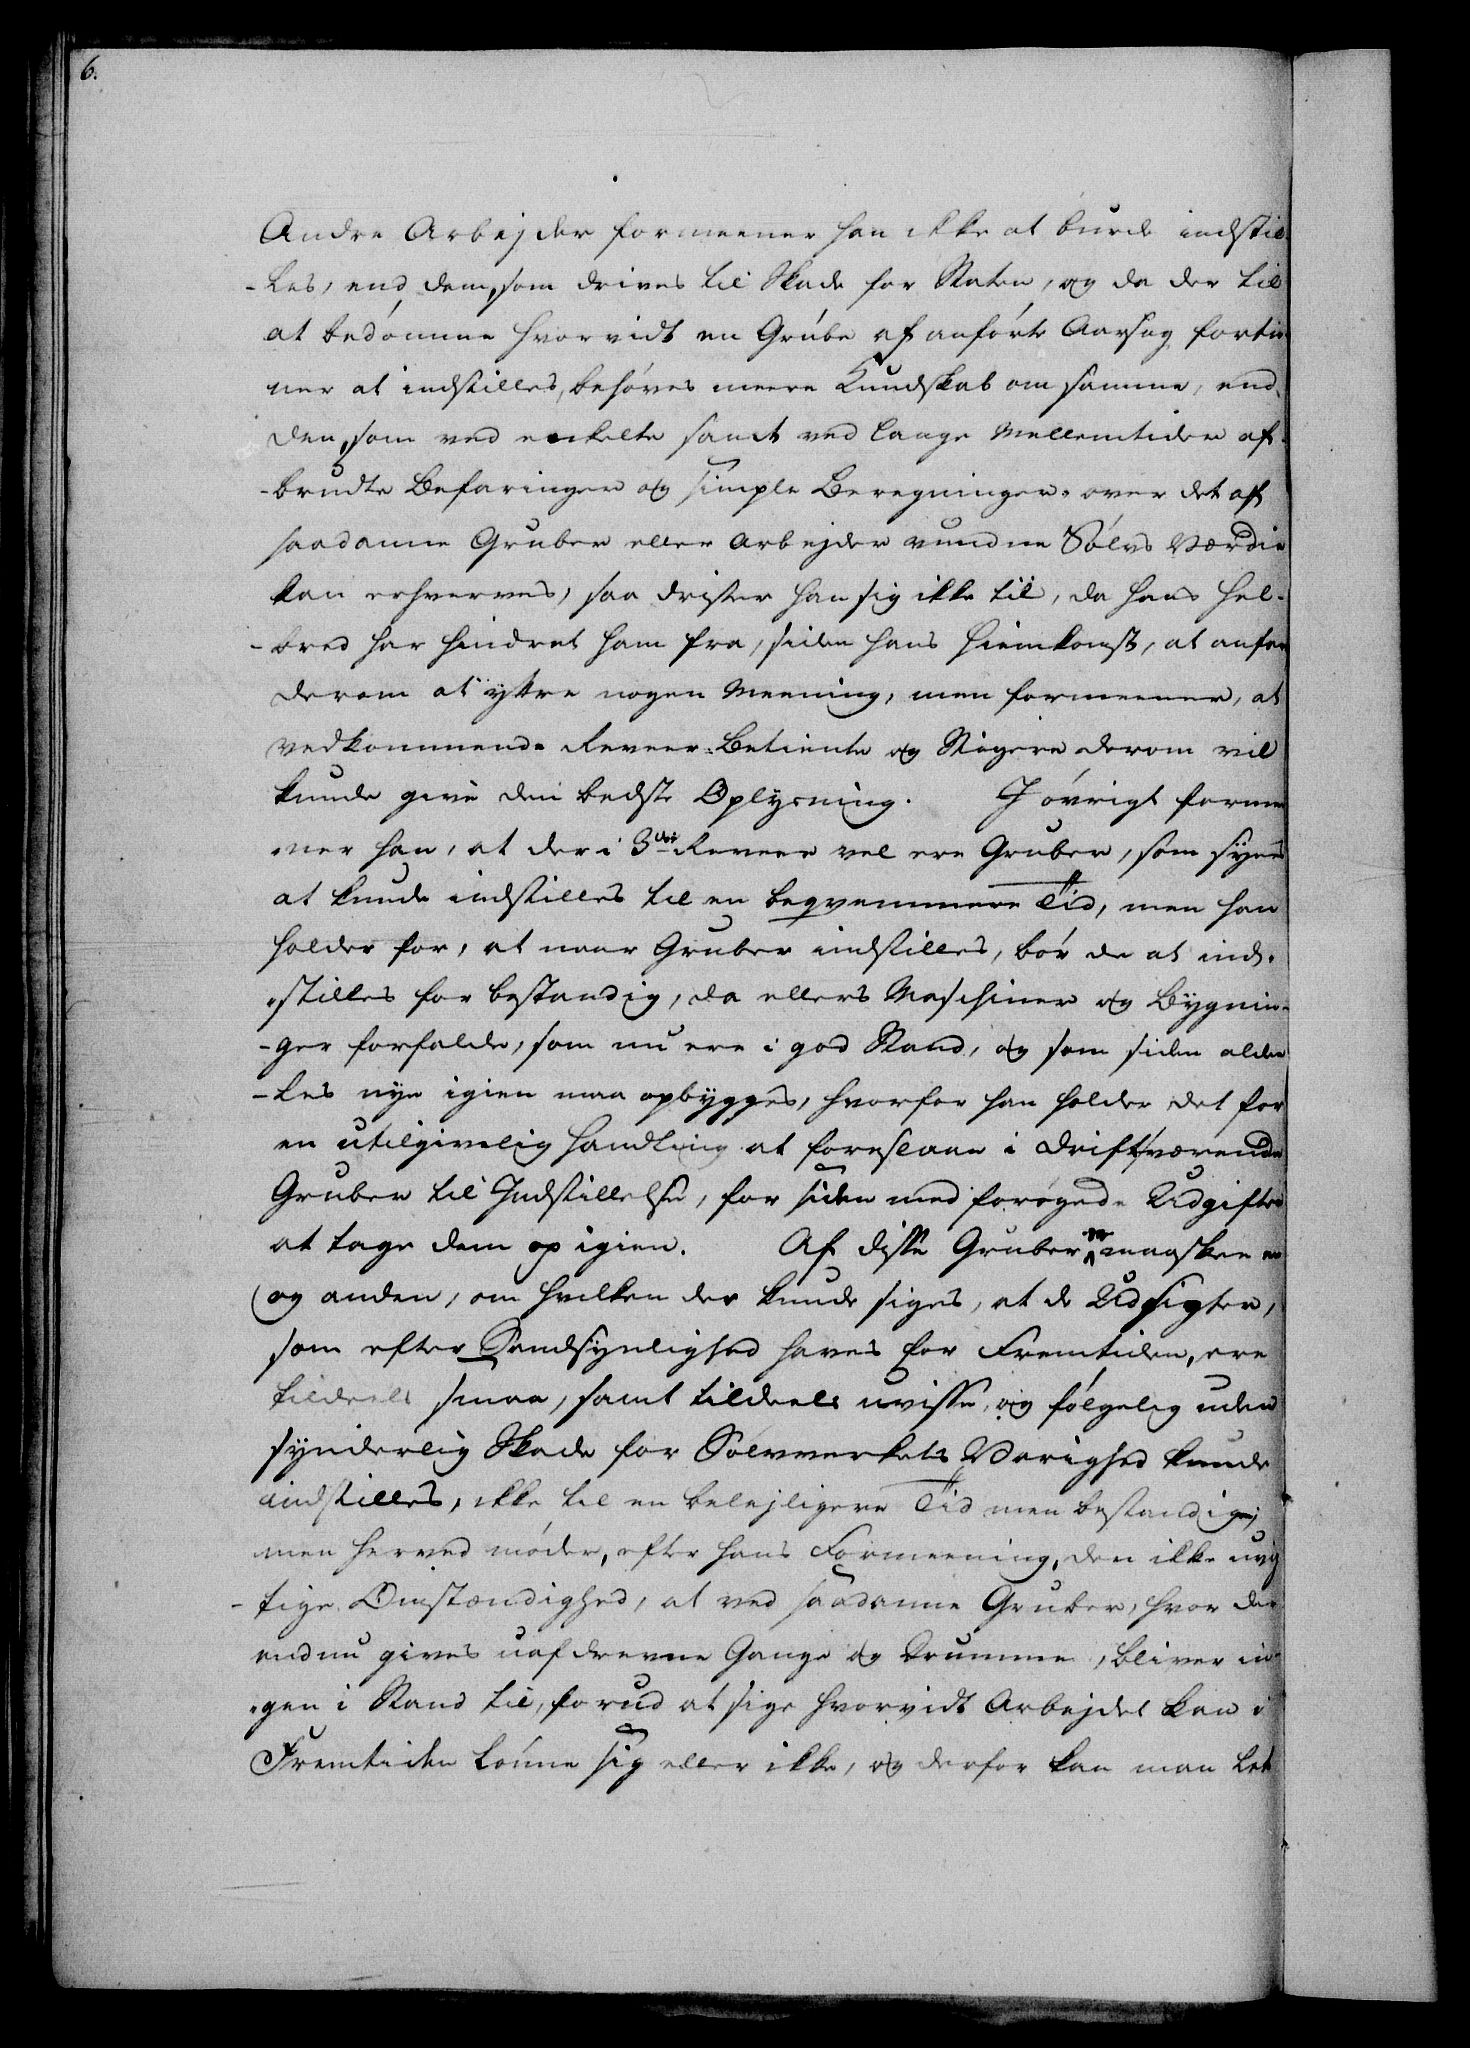 6.
Andre Arbejder formeener han ikke at burde indstil-
-les, end dem, som drives til Skade for Staten, og da der til
at bedömme hvorvidt en Grube af anförte Aarsag fortie-
ner at indstilles, behöves meere Kundskab om samme, end
den, som ved enkelte samt ved lange Mellemtider af-
-brudte Befaringer og simple Beregninger over det af
saadanne Gruber eller Arbejder vundne Sölvs Værdie
kan erhverves, saa drister han sig ikke til, da hans Hel-
-bred har hindret ham fra, siden hans Hiemkomst, at anfare
derom at yttre nogen Meening, men formeener, at
vedkommende Reveer-Betiente og Stigere derom vil
kunde give den bedste Oplysning. I övrigt formee-
-ner han, at der i 3die Reveer vel ere Gruber, som synes
at kunde indstilles til en beqvemmere Tid, men han
holder for, at naar Gruber indstilles, bör de at ind-
-stilles for bestandig, da ellers Maschiner og Bygnin-
-ger forfalde, som nu ere i god Stand, og som siden alde-
-les nye igien maa opbygges, hvorfor han holder det for
en utilgivelig Handling at foreslaae i Drift værende
Gruber til Indstillelse, for siden med forögede Udgifter
at tage dem op igien. Af disse Gruber er maaskee en
og anden, om hvilken der kunde siges, at de Udsigter,
som efter Sandsynlighed haves for Fremtiden, ere
tildeels smaa, samt tildeels uvisse, og fölgelig uden
synderlig Skade for Sölvverkets Varighed kunde
indstilles, ikke til en belejligere Tid men bestandig;
men herved möder, efter hans Formeening, den ikke uvig-
-tige Omstændighed, at ved saadanne Gruber, hvor der
endnu gives uafdrevne Gange og Trumme, bliver in-
-gen i Stand til, forud at sige hvorvidt Arbejdet kan i
Fremtiden lönne sig eller ikke, og derfor kan man let